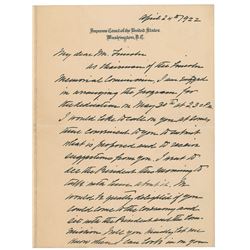 April 24th 1922
Supreme Court of the United States
Washington, D.C.
My dear Mr. Lincoln
As Chairman of the Lincoln
Memorial Commission, I am engaged
in arranging the program for
the dedication on May 30th at 2:30 P.M.
I would like to call on you at some
time convenient to you to submit
what is proposed and to receive
suggestions from you. I went to
see the President this morning to
talk with him about it. We
would be greatly delighted if you
could come to the ceremony and
sit with the President and the Com-
mission. Will you kindly let me
know when I can look in on you